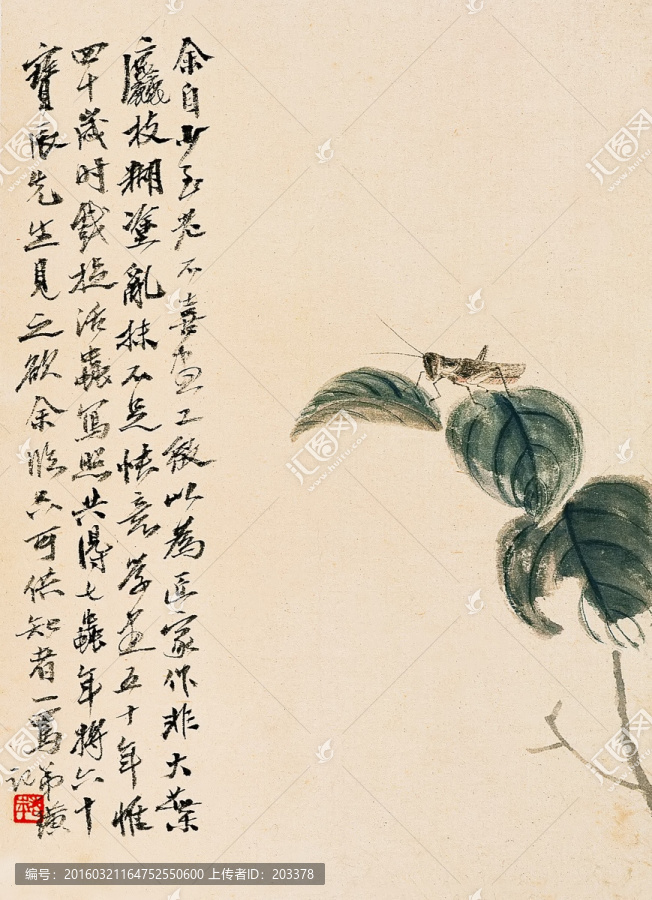 余自少至老不喜畫工致以為匠家作非大葉
麤枝糊塗亂抹不足快意學畫五十年惟
四十歲時戲捉活蟲寫照共得七蟲年將六十
寶辰先生見之欲余臨只可供知者一罵弟璜
記
汇图网
www.huitu.com
编号：20160321164752550600 上传者ID：203378